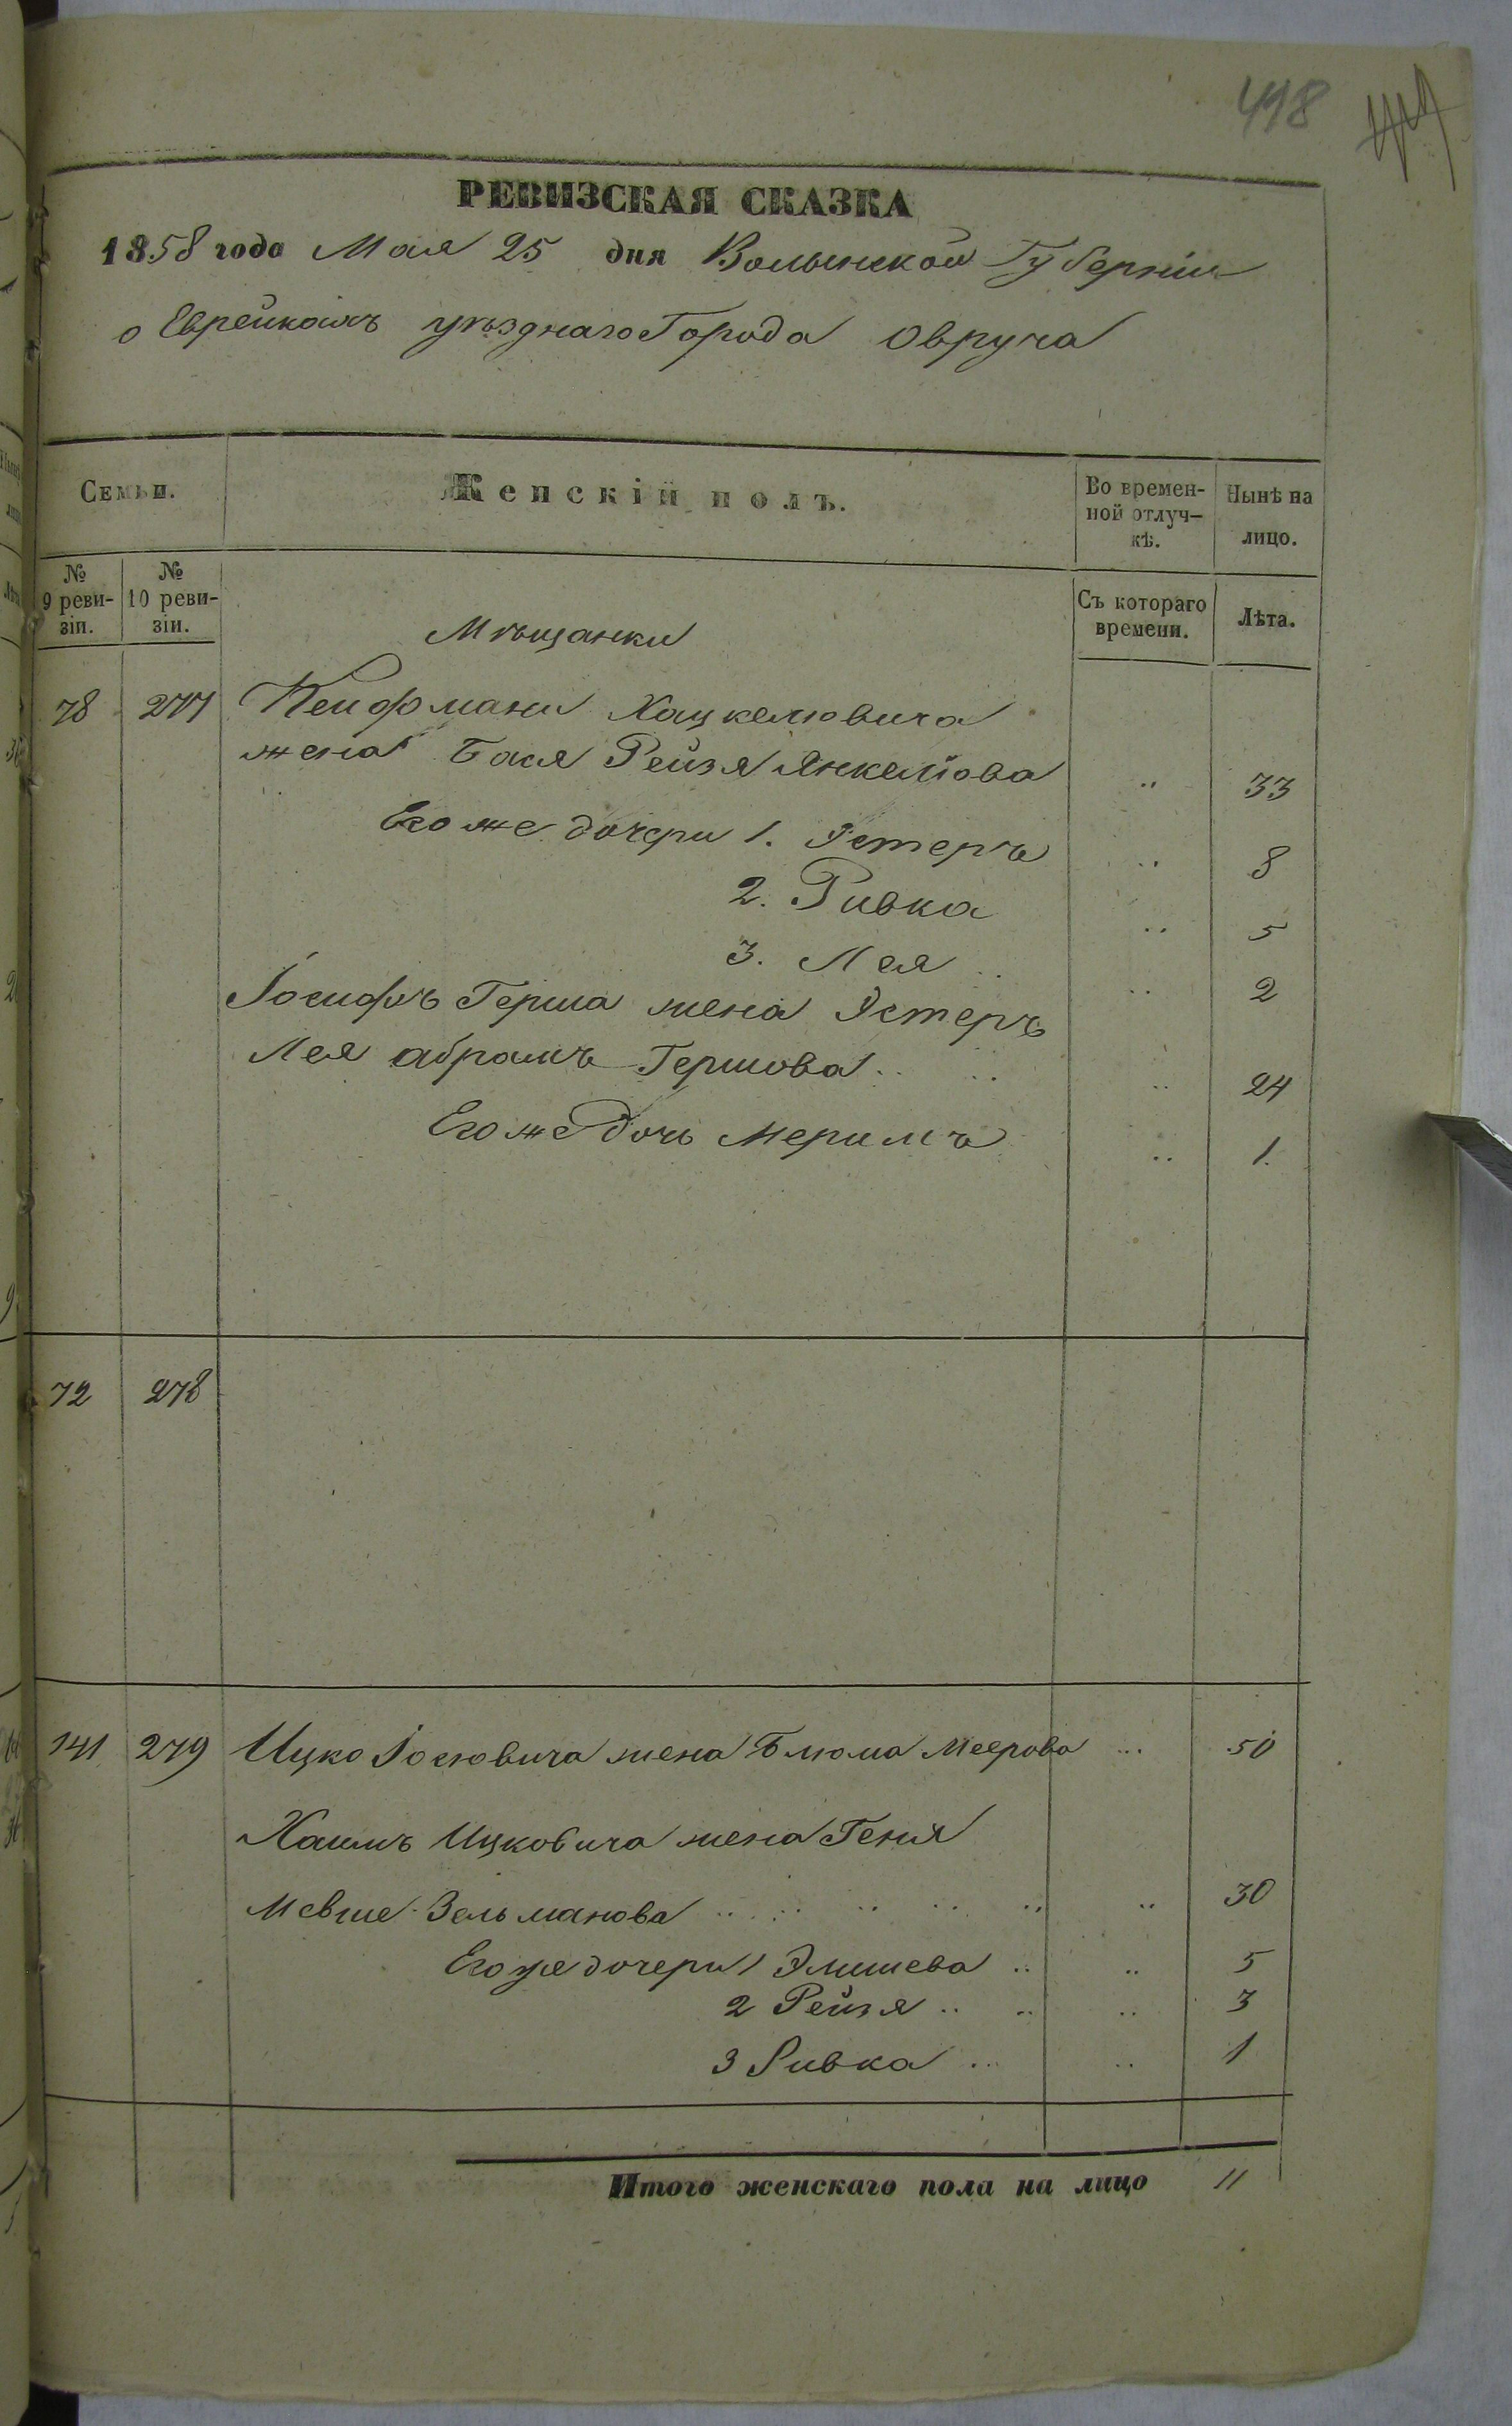 498
РЕВИЗСКАЯ СКАЗКА
1858 года Мая 25 дня Волынской Губерніи
о Еврейкахъ уѣзднаго Города Овруча
Семьи.
Женскій полъ.
Во времен-
ной отлуч-
кѣ.
Нынѣ на
лицо.
№
9 реви-
зіи.
№
10 реви-
зіи.
Съ котораго
времени.
Лѣта.
Мѣщанки
78 277 Хацкелювича
жена Бася Рейзя Янкелiова .. 33
Его же дочери 1. Эстеръ .. 8
2. Ривка .. 5
3. Лея .. .. 2
Іосифъ Герша жена Эстеръ
Лея Абрамъ Гершова .. .. .. 24
Его же дочь Меримъ .. 1.
72 278
141 279 Ицко Іосіовича жена Блюма Меерова ... 50
Хаимъ Ицковича жена Геня
Мевше Зельманова .. .. .. .. .. .. 30
Его же дочери 1 Элишева .. .. 5
2 Рейзя .. .. .. 3
3 Ривка .. .. 1
Итого женскаго пола на лицо 11